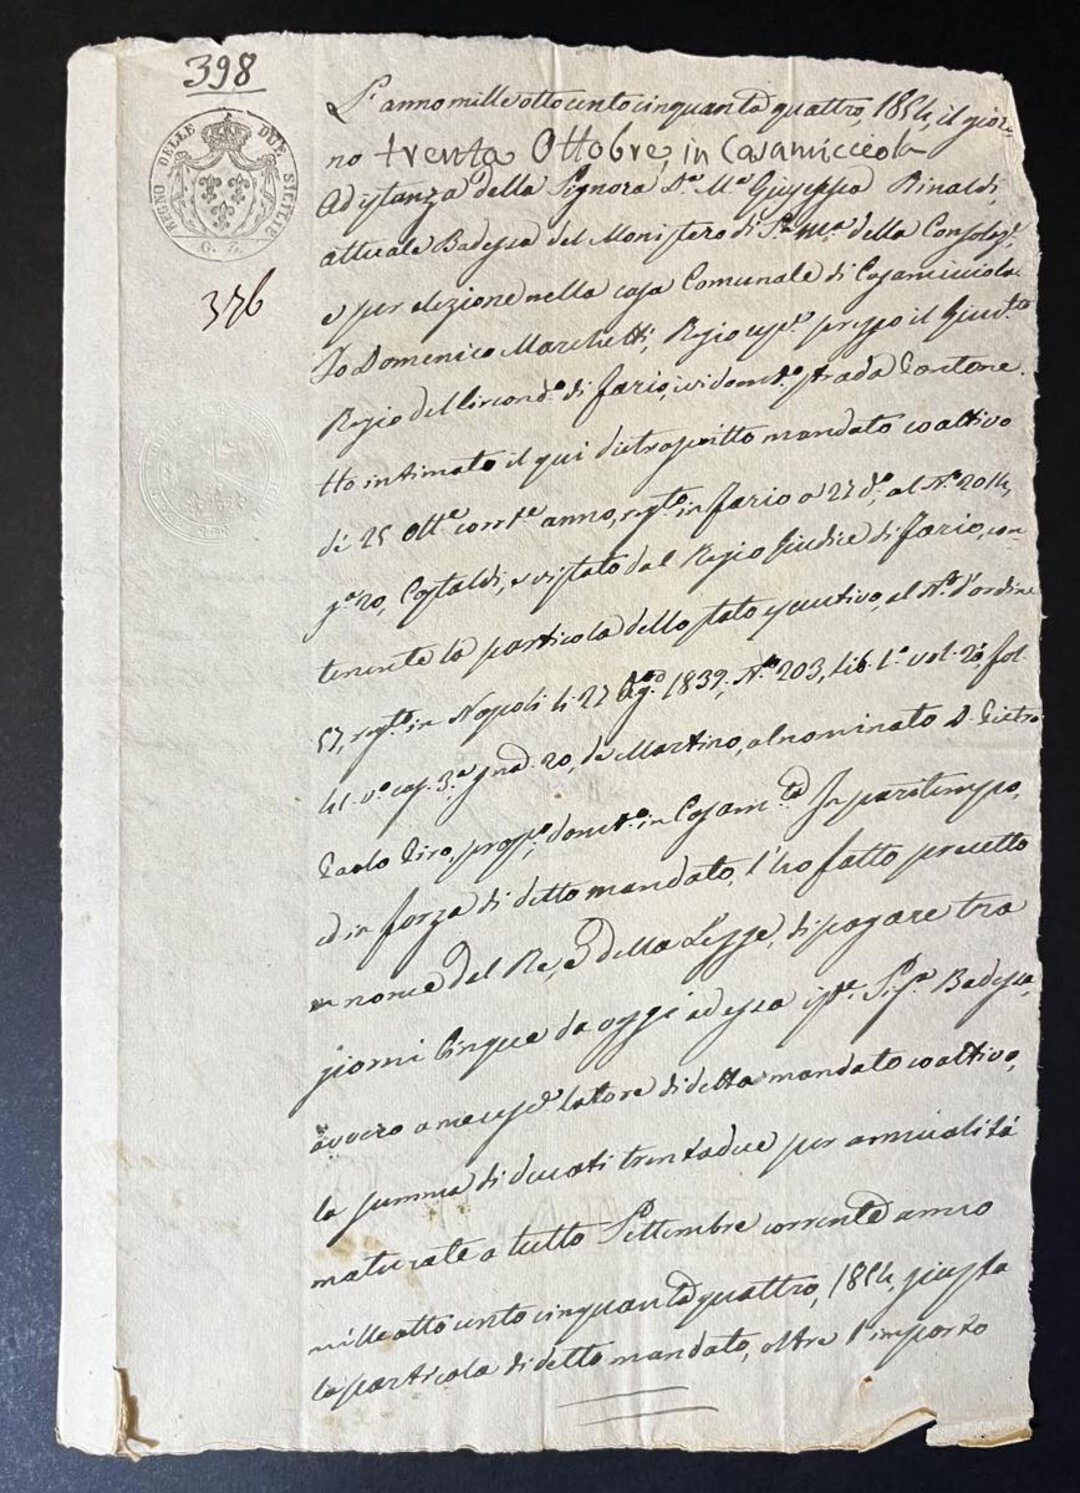 398
REGNO DELLE DUE SICILIE
G. 7.
376
L'anno mille ottocento cinquanta quattro, 1854, il gior-
no trenta Ottobre, in Casamicciola
Ad istanza della Signora D.ª M.ª Giuseppa Rinaldi,
attuale Badessa del Monistero di S.ª M.ª della Consolaz.e,
e per elezione nella casa Comunale di Casamicciola
Io Domenico Marchetti, Regio usc.e presso il Giud.to
Regio del Circond.o di Forio, ivi dom.to strada Cantone.
Ho intimato il qui dietroscritto mandato coattivo
de' 25 Ott.e corr.te anno, reg.to in Forio a 27 d.o, al N.o 2014,
g.a 20, Castaldi, e vistato dal Regio Giudice di Forio, con-
tenente la particola dello stato esecutivo, al N.o d'ordine
57, reg.to in Napoli li 27 Ag.to 1839, N.o 203, lib. 1.o vol. 20, fol.
41 v.o cas. 3.a grad. 20, de Martino, al nominato D. Pietro
Paolo Piro, prop.o, domic.to in Casam.la In pari tempo,
ed in forza di detto mandato, l'ho fatto precetto
in nome del Re, e della Legge, di pagare tra
giorni Cinque da oggi ad essa ist.e Sig.a Badessa,
ovvero a me usc.e latore di detto mandato coattivo,
la summa di ducati trentadue per annualità
maturate a tutto Settembre corrente anno
mille ottocento cinquanta quattro, 1854, giusta
la particola di detto mandato, oltre l'importo